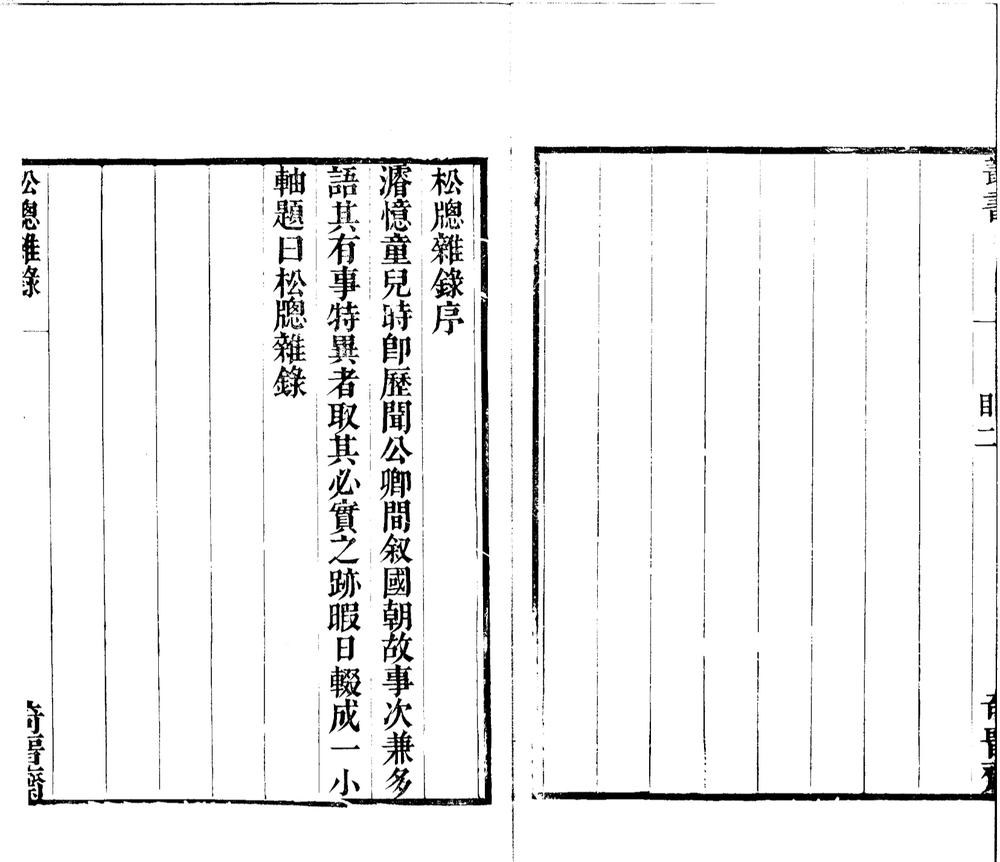 叢書
目二
松牕雜錄序
濬憶童兒時卽歷聞公卿間叙國朝故事次兼多
語其有事特異者取其必實之跡暇日輟成一小
軸題曰松牕雜錄
松牕雜錄